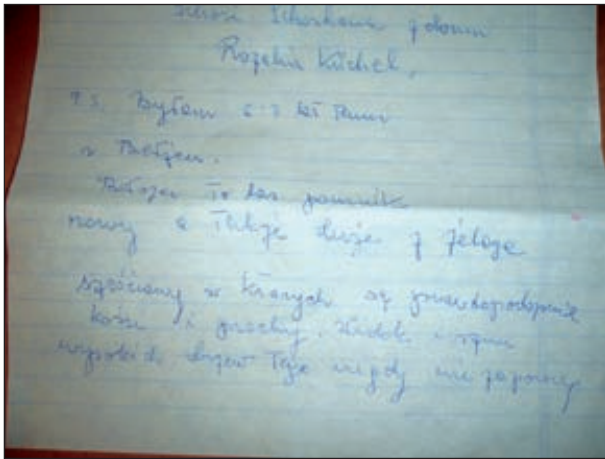 z domu
Küchel,
P.S. Byłam 6-7 lat temu
w Bełżcu.
to las pomnik
nowy a także duże z żelaza
sześciany w których są prawdopodobnie
kości i prochy. Widok i szum
wysokich drzew tego nigdy nie zapomnę